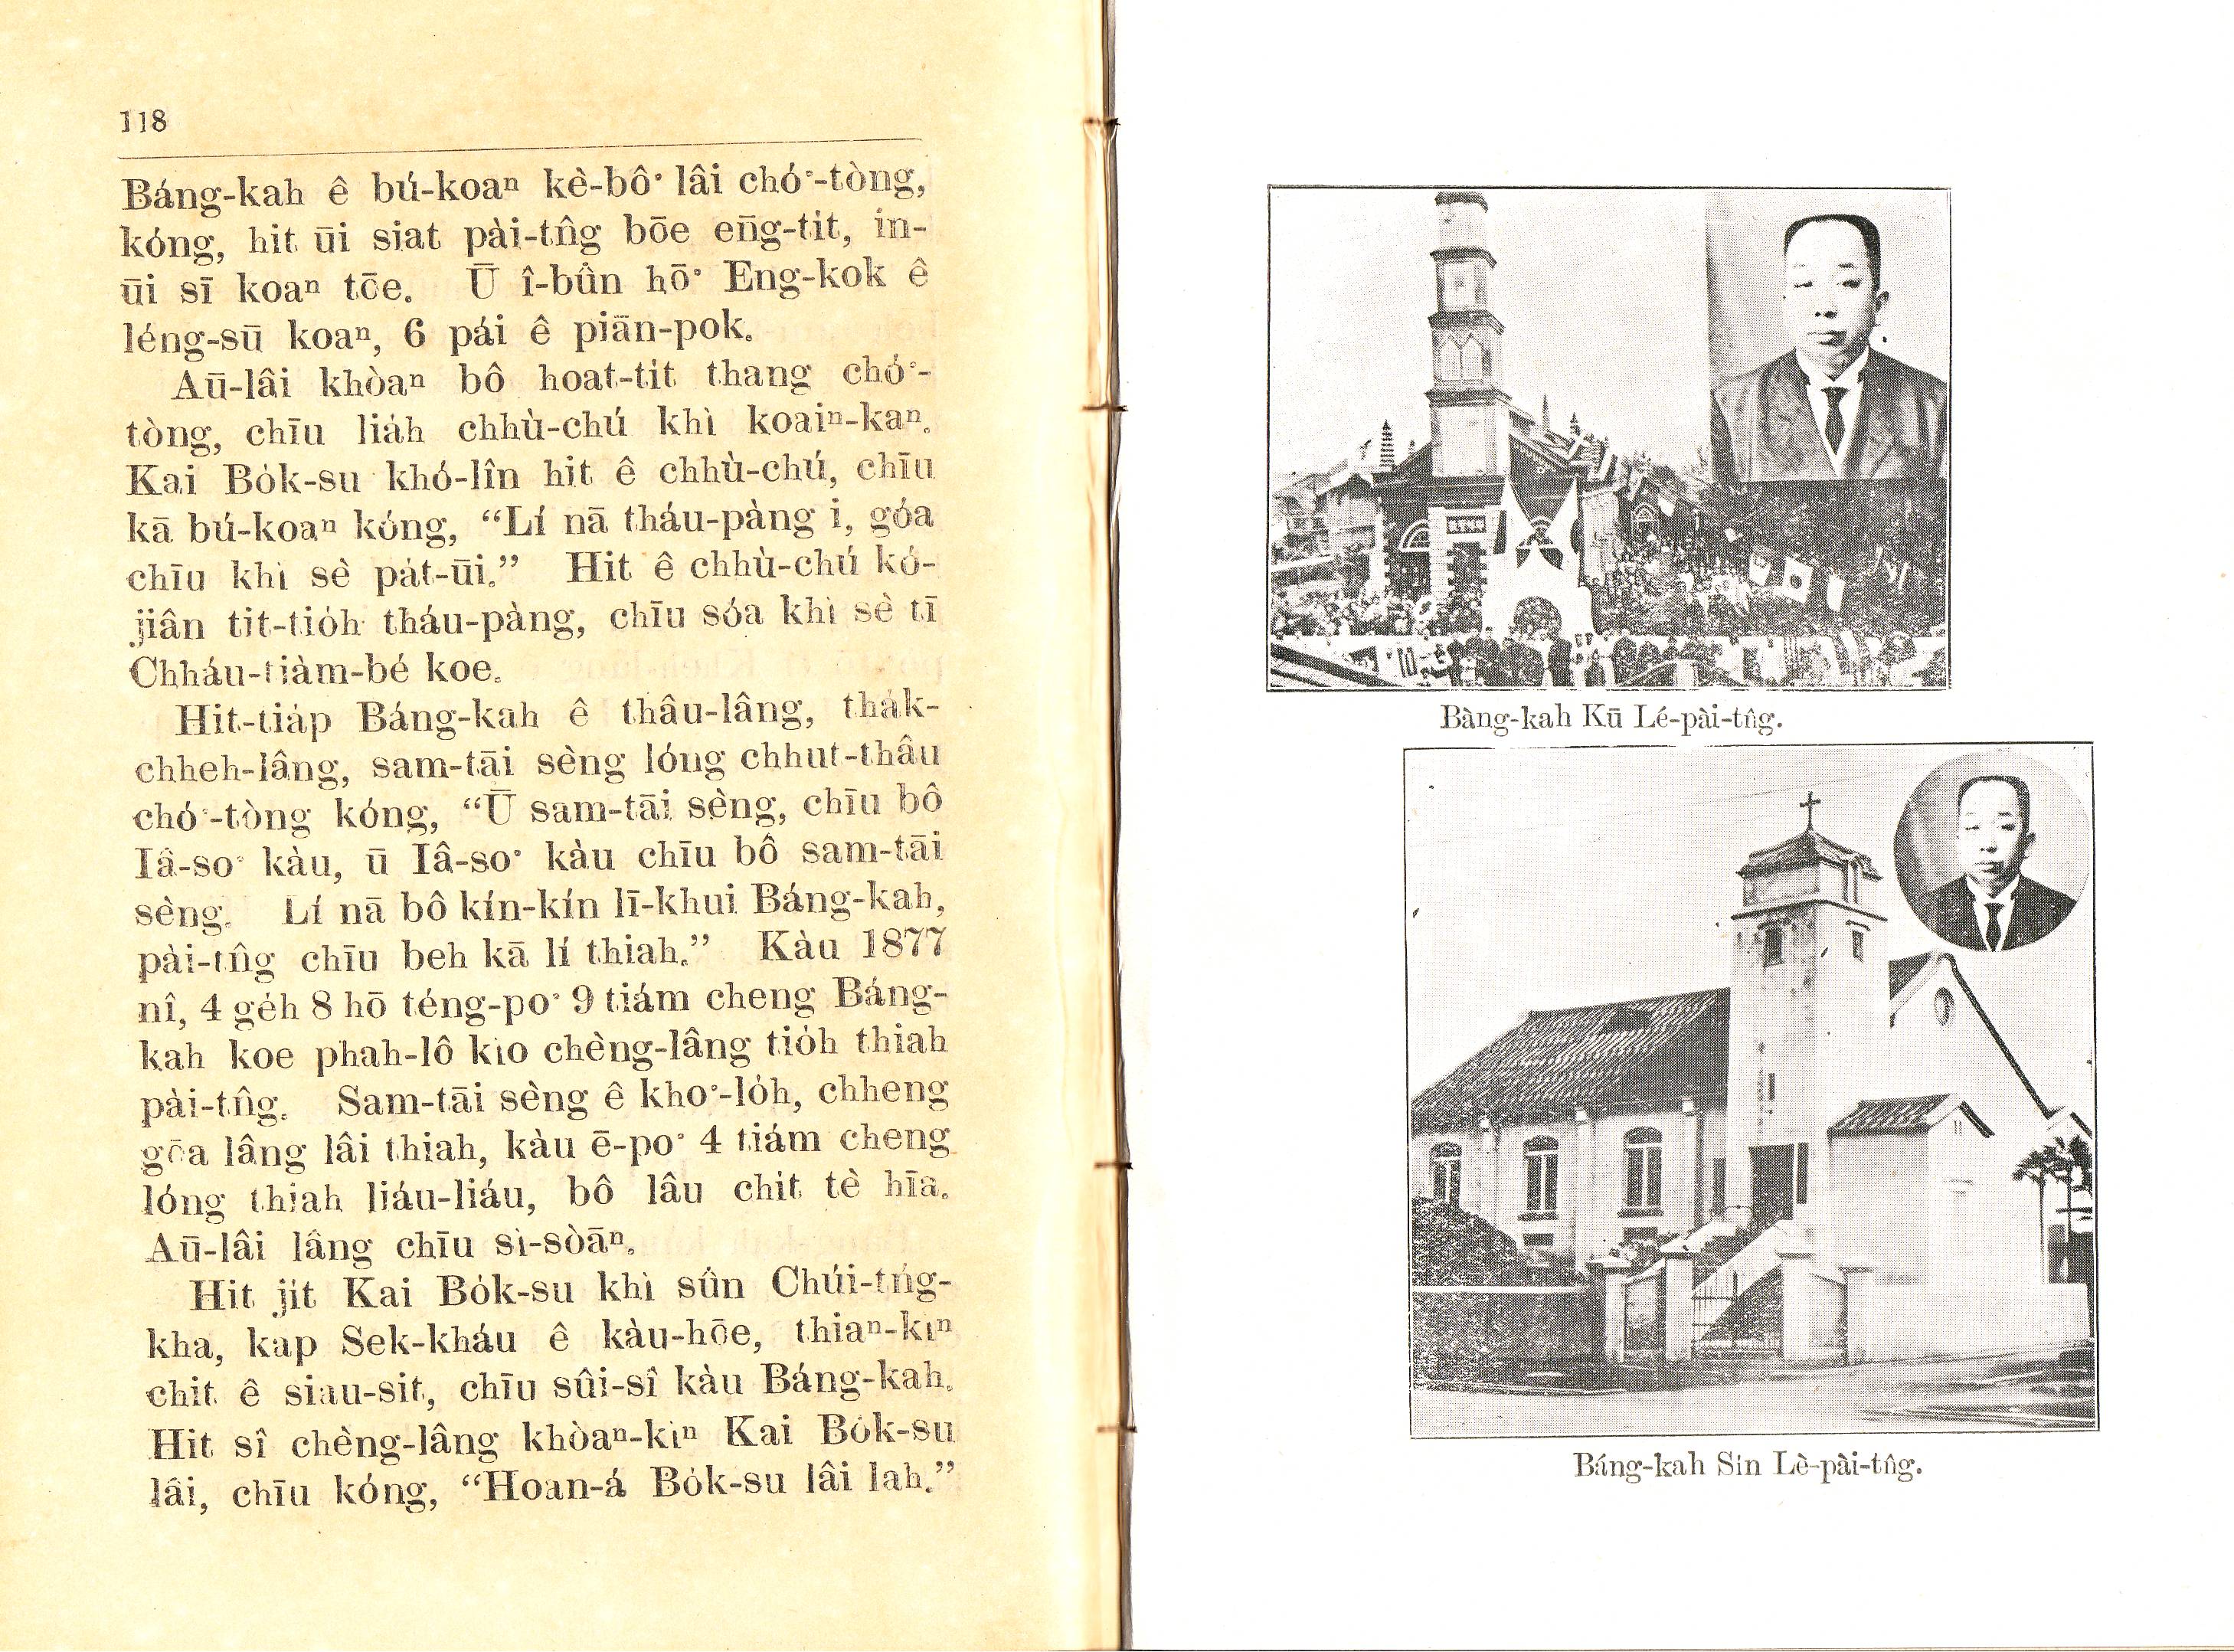 118
Báng-kah ê bú-koaⁿ kè-bô͘ lâi chó͘-tòng,
kóng, hit ūi siat pài-tn̂g bōe eng-tit, in-
ūi sī koaⁿ tōe. Ū î-bûn hō͘ Eng-kok ê
léng-sū koaⁿ, 6 pái ê piān-pok.
Aū-lâi khòaⁿ bô hoat-tit thang chó͘-
tòng, chīu lia̍h chhù-chú khì koaiⁿ-kaⁿ.
Kai Bo̍k-su khó-lîn hit ê chhù-chú, chīu
kā bú-koaⁿ kóng, “Lí nā tháu-pàng i, góa
chīu khì sè pa̍t-ūi.” Hit ê chhù-chú kó-
jiân tit-tio̍h tháu-pàng, chīu sóa khì sè tī
Chháu-tiàm-bé koe.
Hit-tia̍p Báng-kah ê thâu-lâng, tha̍k-
chheh-lâng, sam-tāi sèng lóng chhut-thâu
chó͘-tòng kóng, “Ū sam-tāi sèng, chīu bô
Iâ-so͘ kàu, ū Iâ-so͘ kàu chīu bô sam-tāi
sèng. Lí nā bô kín-kín lī-khui Báng-kah,
pài-tn̂g chīu beh kā lí thiah.” Kàu 1877
nî, 4 ge̍h 8 hō téng-po͘ 9 tiám cheng Báng-
kah koe phah-lô kio chèng-lâng tio̍h thiah
pài-tn̂g. Sam-tāi sèng ê kho͘-lo̍h, chheng
gōa lâng lâi thiah, kàu ē-po͘ 4 tiám cheng
lóng thiah liáu-liáu, bô lâu chit tè hīa.
Aū-lâi lâng chīu sì-sòāⁿ.
Hit ji̍t Kai Bo̍k-su khì sûn Chúi-tńg-
kha, kap Sek-kháu ê kàu-hōe, thiaⁿ-kìⁿ
chit ê siau-sit, chīu sûi-sî kàu Báng-kah.
Hit sî chèng-lâng khòaⁿ-kìⁿ Kai Bo̍k-su
lâi, chīu kóng, “Hoan-á Bo̍k-su lâi lah.”
Bàng-kah Kū Lé-pài-tn̂g.
Báng-kah Sin Lè-pài-tn̂g.